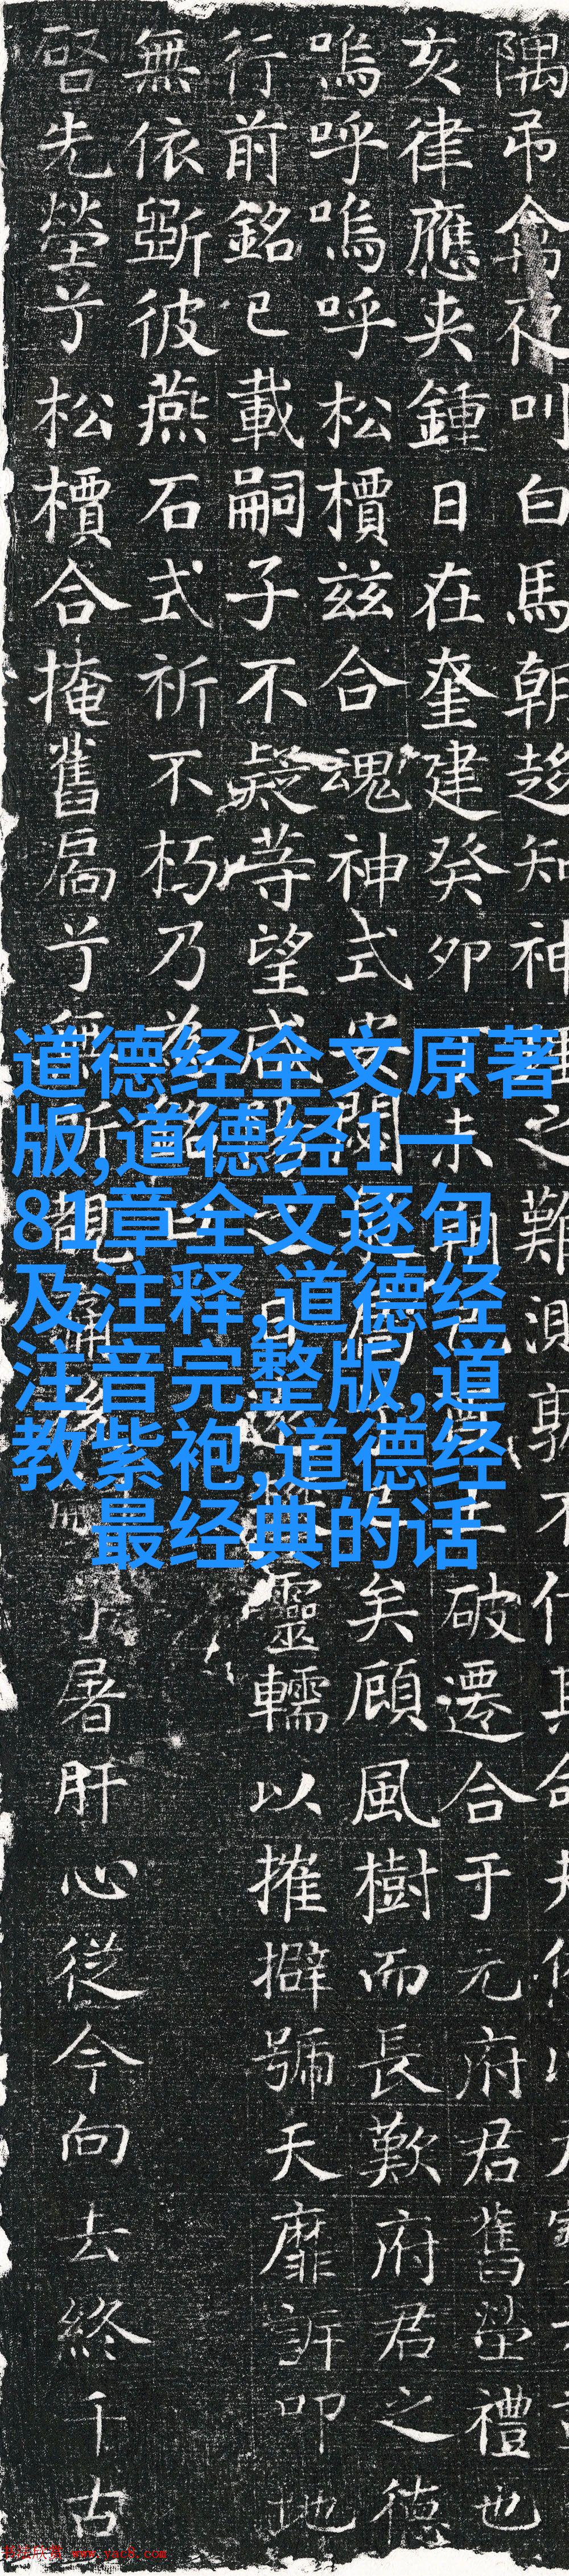 隅吊禽夜叫白馬朝趍知神之難測孰不
亥律應夾鍾日在奎建癸卯未破遷合于元府君舊塋禮也
嗚呼嗚呼松檟茲合魂神式安關矣顧風樹而長歎府君之德
行前銘已載嗣子不疑等望咸靈轜以摧擗號天靡訴叩地
無依斲彼燕石式祈不朽乃為銘
啓先塋兮松檟合掩舊扃兮無所覿痛兮屠肝心從今向去終千古
道德经全文原著
版,道德经1一
81章全文逐句
及注释,道德经
注音完整版,道
教紫袍,道德经
最经典的话
书法欣赏 www.yac8.com